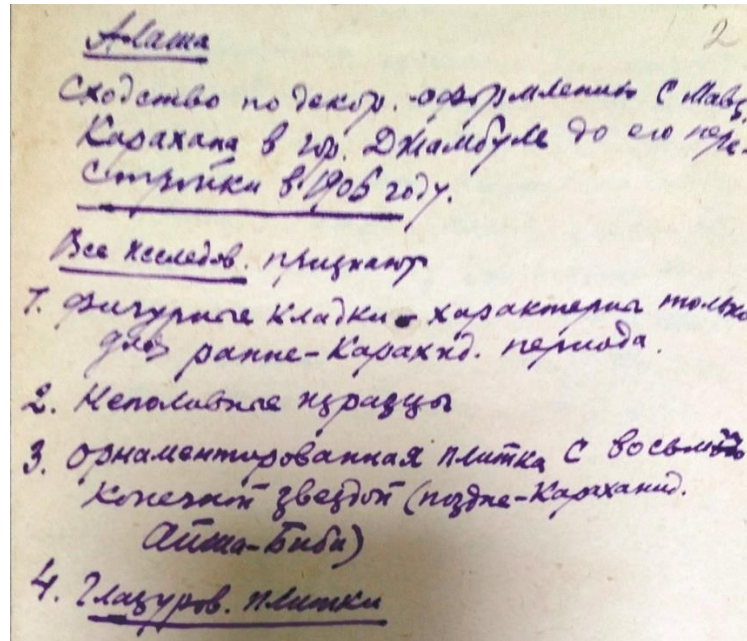 Алаша
2
Сходство по декор. оформлению с Мавз.
Карахана в гор. Джамбуле до его пере-
стройки в 1906 году.
Все исследов. признают
1. Фигурные кладки - характерны только
для ранне-Карахнд. периода.
2. Неполивные изразцы
3. Орнаментированная плитка с восьми
конечной звездой (поздне-Караханид.
Айша-Биби)
4. Глазуров. плитки